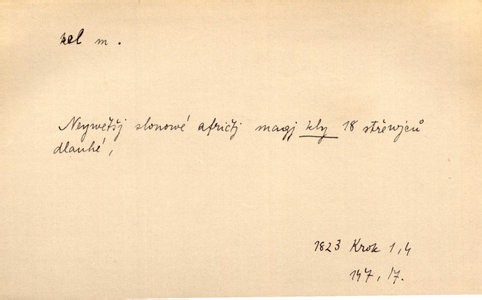 kel m.
Neywětšj slonowé afričtj magj kly 18 střewjců
dlauhé,
1823 Krok 1,4
147, 17.